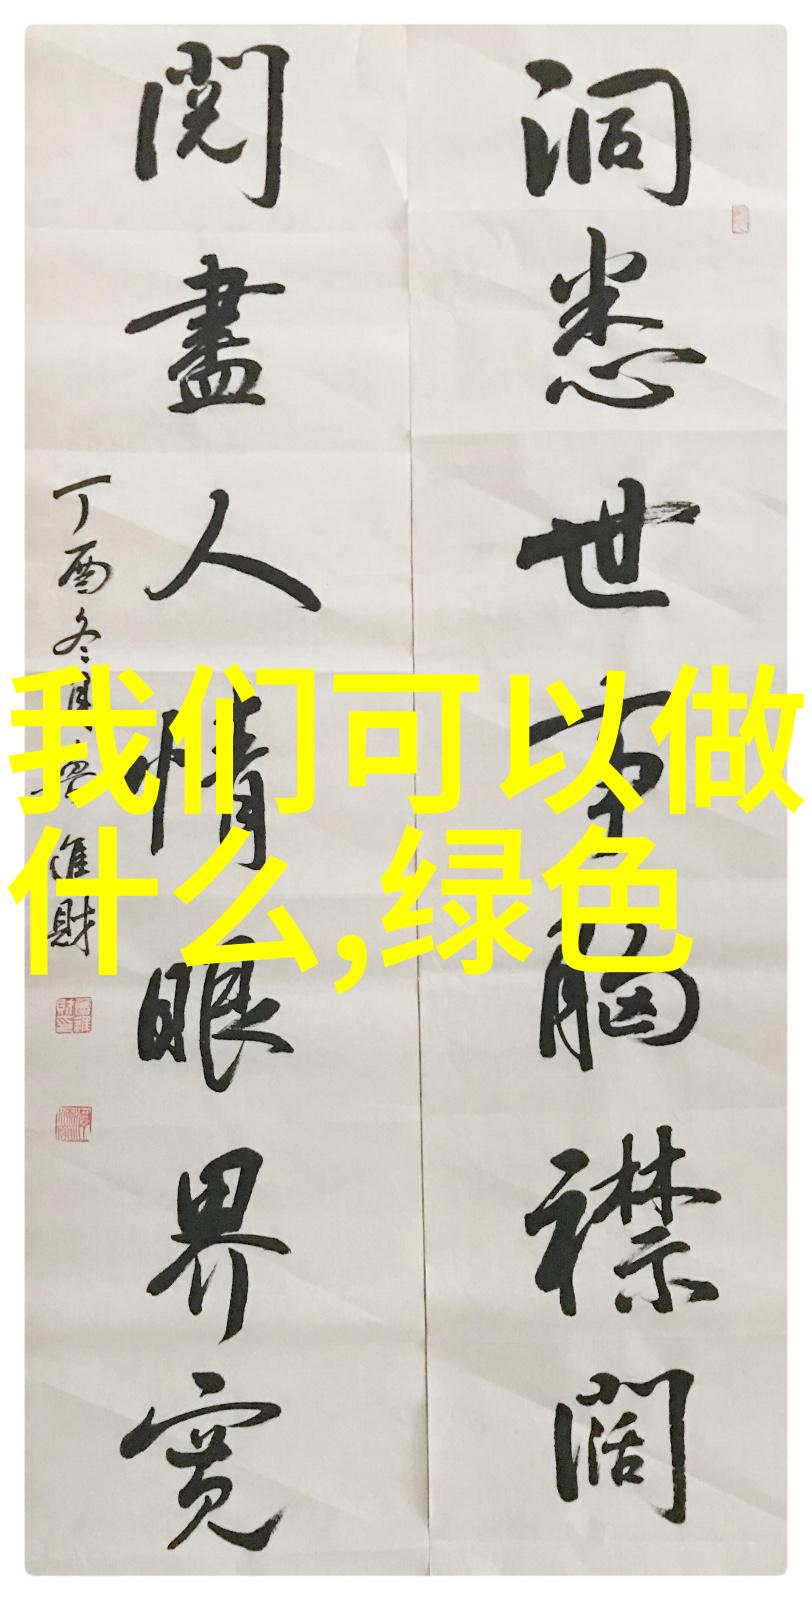 洞悉世事胸襟闊
閱盡人情眼界寬
丁酉冬月
進財
我们可以做
什么,绿色